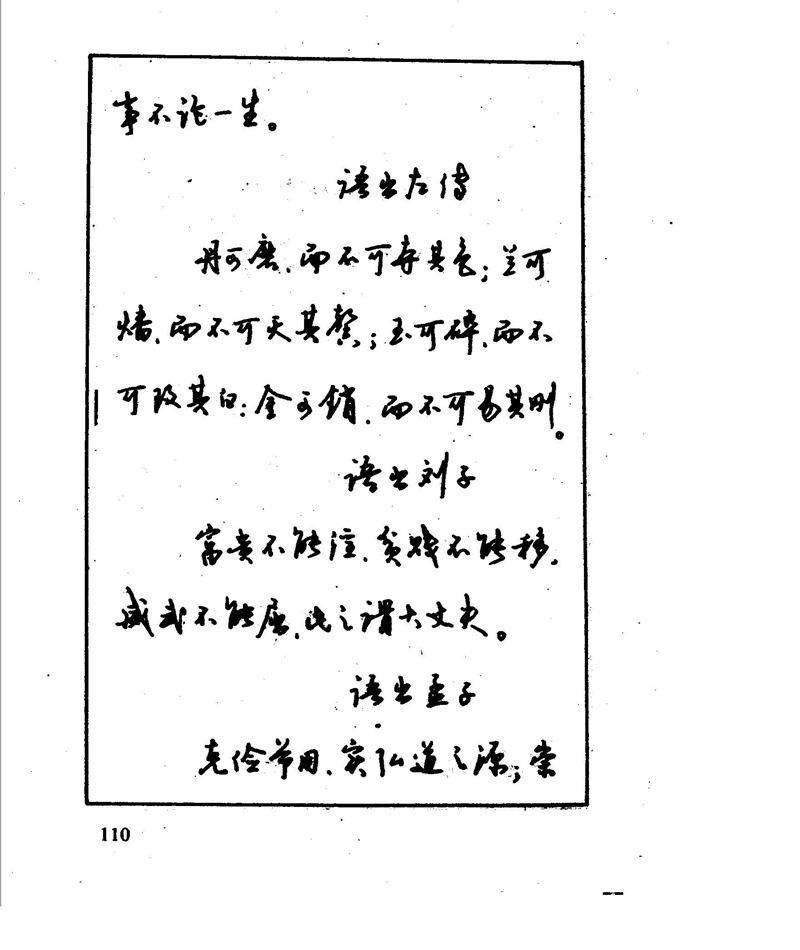 事不论一生。
语出左传
丹可磨,而不可夺其色;兰可
燔,而不可灭其馨;玉可碎,而不
可改其白;金可销,而不可易其刚。
语出刘子
富贵不能淫,贫贱不能移,
威武不能屈,此之谓大丈夫。
语出孟子
克俭节用,实弘道之源;崇
110